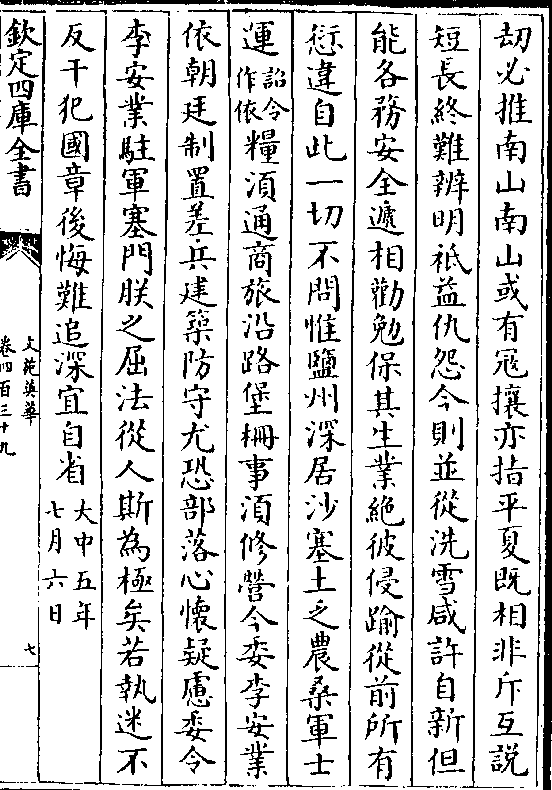 刼必推南山南山或有冦攘亦指平夏既相非斥互説
短長終難辨明祗益仇怨今則並從洗雪咸許自新但
能各務安全遞相勸勉保其生業絶彼侵踰從前所有
愆違自此一切不問惟鹽州深居沙塞土乏農桑軍士
運詔令作依糧湏通商旅沿路堡栅事湏修營今委李安業
依朝廷制置差兵建築防守尤恐部落心懷疑慮委令
李安業駐軍塞門朕之屈法從人斯為極矣若執迷不
反干犯國章後悔難追深宜自省大中五年七月六日
欽定四庫全書
文苑英華
卷四百三十九
七